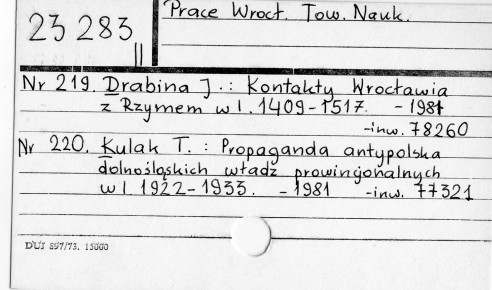 23 283
II
Prace Wrocł. Tow. Nauk.
Nr 219. Drabina J.: Kontakty Wrocławia
z Rzymem w l. 1409-1517. - 1981
-inw. 78260
Nr 220. Kulak T.: Propaganda antypolska
dolnośląskich władz prowincjonalnych
w l. 1922-1933. - 1981 -inw. 77321
DUJ 897/73. 15000